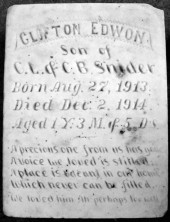 CLIFTON EDWON
Son of
C.L. & C.B. Snider
Born Aug. 27, 1913.
Died Dec. 2, 1914.
Aged 1 Y. 3 M. & 5 D.
A precious one from us has gone
A voice we loved is stilled
A place is vacant in our home
Which never can be filled.
We loved him